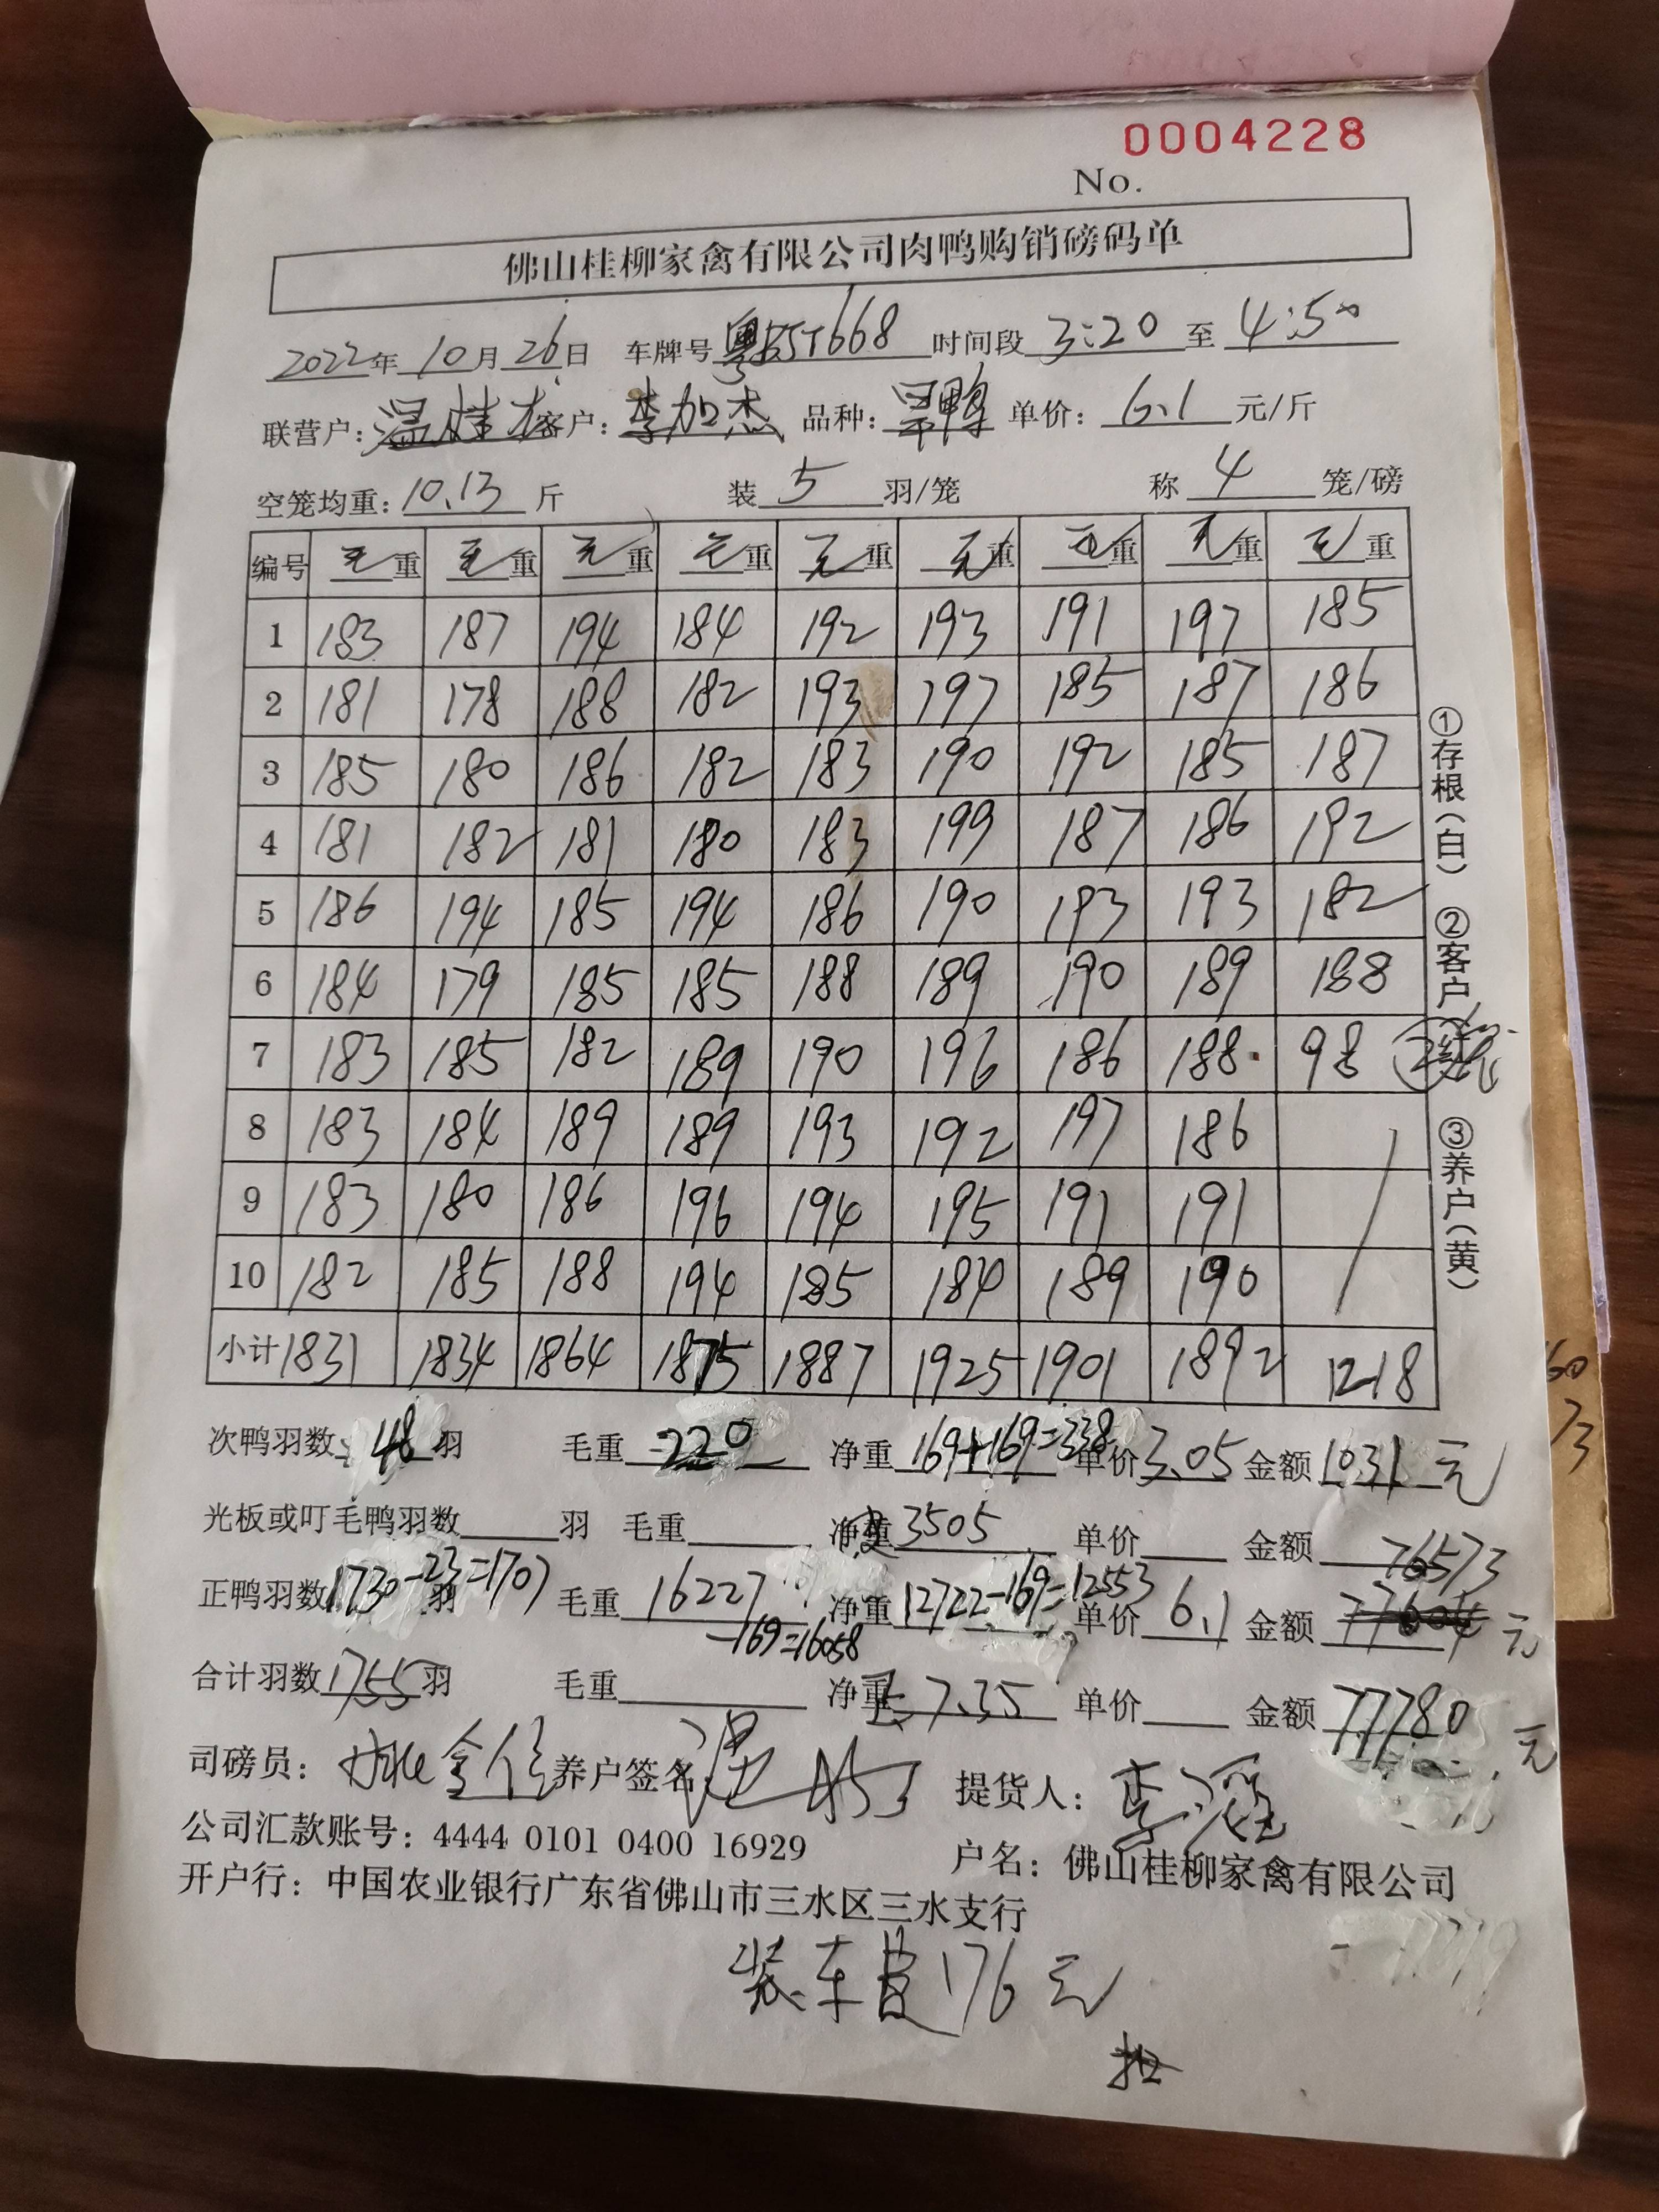 0004228
No.
佛山桂柳家禽有限公司肉鸭购销磅码单
2022年 10月 26日 车牌号 668 时间段 3:20 至 4:50
联营户: 温桂 客户: 李加杰 品种: 鸭 单价: 6.1 元/斤
空笼均重: 10.13 斤 装 5 羽/笼 称 4 笼/磅
编号 毛重 毛重 毛重 毛重 毛重 毛重 毛重 毛重 毛重
1 183 187 194 184 192 193 191 197 185
2 181 178 188 182 193 197 185 187 186
3 185 180 186 182 183 190 192 185 187
4 181 182 181 180 183 199 187 186 192
5 186 194 185 194 186 190 193 193 182
6 184 179 185 185 188 189 190 189 188
7 183 185 182 189 190 196 186 188 98
8 183 184 189 189 193 192 197 186
9 183 180 186 196 194 195 191 191
10 182 185 188 194 185 184 189 190
小计 1831 1834 1864 1875 1887 1925 1901 1892 1218
次鸭羽数 48 羽 毛重 220 净重 169+169=338 单价 3.05 金额 1031 元
光板或叮毛鸭羽数 羽 毛重 净重 3505 单价 金额 76573
正鸭羽数 1730-23=1707 羽 毛重 16227 净重 12722-169=12553 单价 6.1 金额 77604 元
-169=16058
合计羽数 1755 羽 毛重 净重 7.35 单价 金额 77780 元
司磅员: 养户签名 温 提货人: 李
公司汇款账号: 4444 0101 0400 16929 户名: 佛山桂柳家禽有限公司
开户行: 中国农业银行广东省佛山市三水区三水支行
装车费 176 元
①存根(白) ②客户( ③养户(黄)